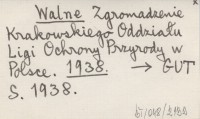 Walne Zgromadzenie
Krakowskiego Oddziału
Ligi Ochrony Przyrody w
Polsce. 1938. → GUT
S. 1938.